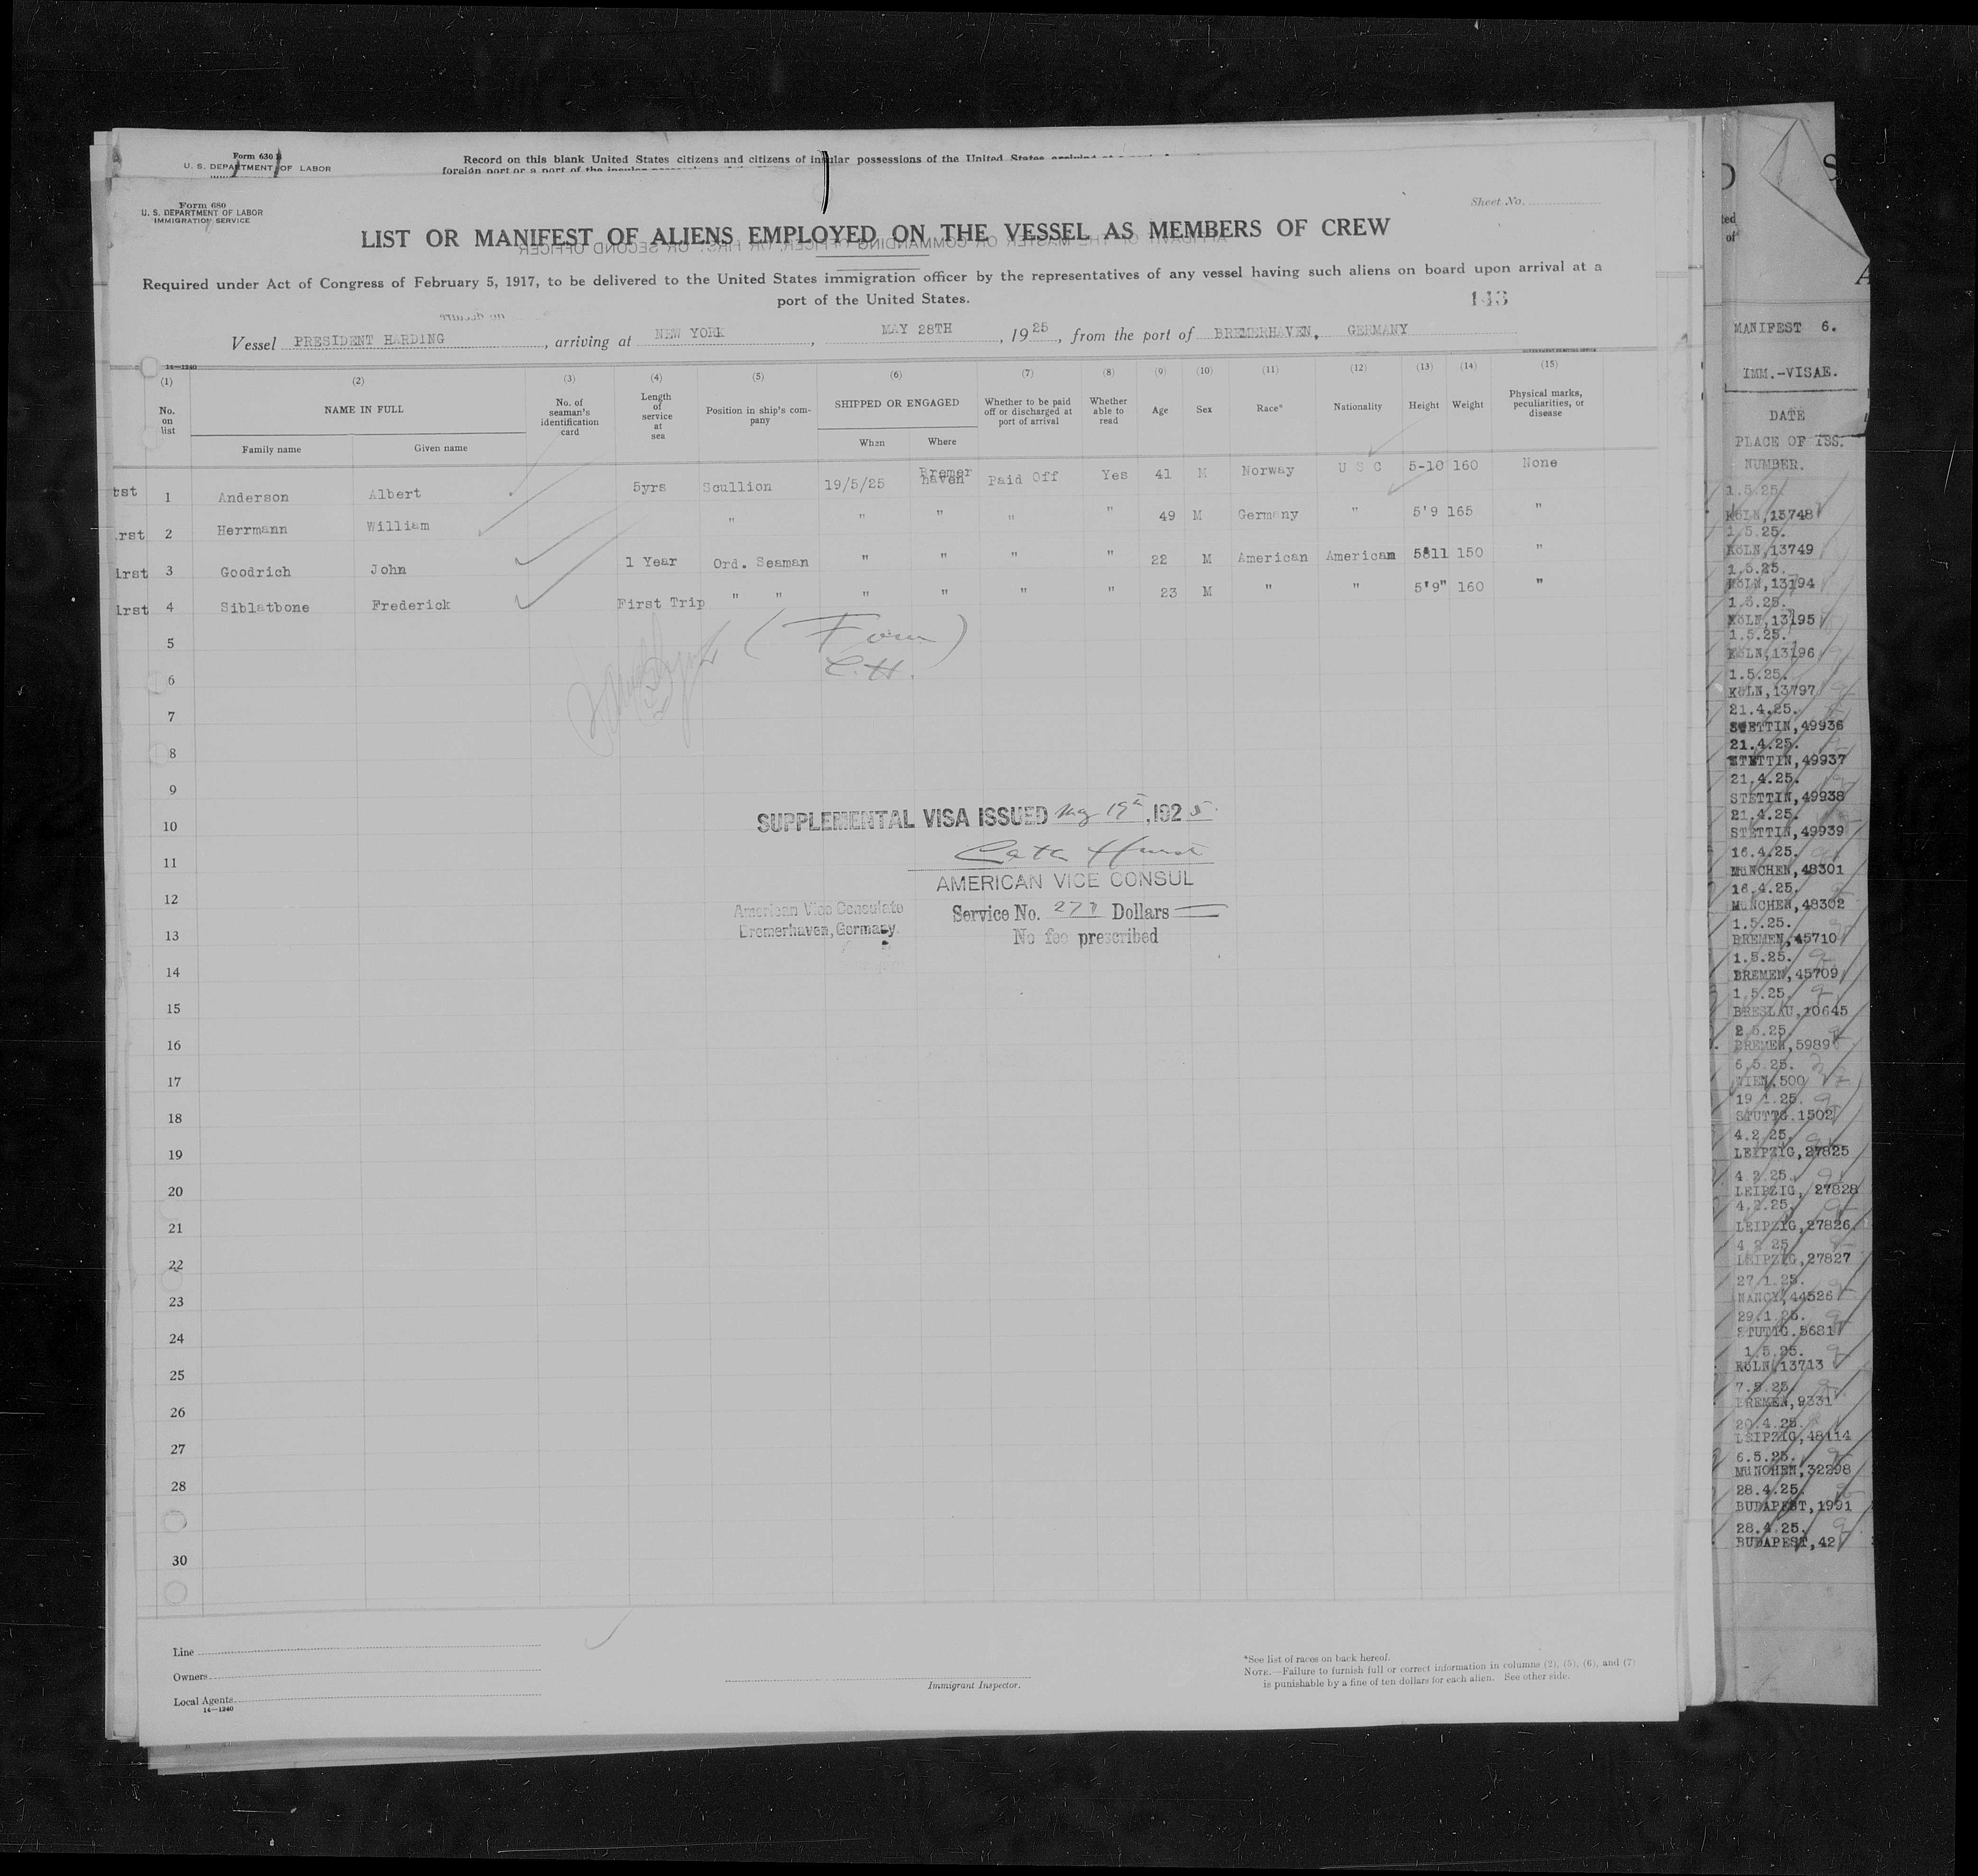 Form 630
U. S. DEPARTMENT OF LABOR
Record on this blank United States citizens and citizens of insular possessions of the United States
foreign port or a port of the insular
Form 680
U. S. DEPARTMENT OF LABOR
IMMIGRATION SERVICE
Sheet No.
LIST OR MANIFEST OF ALIENS EMPLOYED ON THE VESSEL AS MEMBERS OF CREW
Required under Act of Congress of February 5, 1917, to be delivered to the United States immigration officer by the representatives of any vessel having such aliens on board upon arrival at a
port of the United States.
143
Vessel PRESIDENT HARDING, arriving at NEW YORK, MAY 28TH, 1925, from the port of BREMERHAVEN, GERMANY
14—1240
(1) (2) (3) (4) (5) (6) (7) (8) (9) (10) (11) (12) (13) (14) (15)
No. on list
NAME IN FULL
Family name Given name
No. of seaman's identification card
Length of service at sea
Position in ship's company
SHIPPED OR ENGAGED
When Where
Whether to be paid off or discharged at port of arrival
Whether able to read
Age
Sex
Race*
Nationality
Height
Weight
Physical marks, peculiarities, or disease
1 Anderson Albert 5yrs Scullion 19/5/25 Bremerhaven Paid Off Yes 41 M Norway U S C 5-10 160 None
rst 2 Herrmann William " " " " " 49 M Germany " 5'9 165 "
irst 3 Goodrich John 1 Year Ord. Seaman " " " " 22 M American American 5'11 150 "
irst 4 Siblatbone Frederick First Trip " " " " " " 23 M " " 5'9" 160 "
5
6
C.H.
7
8
9
10
11
12
13
14
15
16
17
18
19
20
21
22
23
24
25
26
27
28
30
SUPPLEMENTAL VISA ISSUED May 19th, 1925.
AMERICAN VICE CONSUL
American Vice Consulate
Bremerhaven, Germany.
Service No. 277 Dollars —
No fee prescribed
Line
Owners
Local Agents
14—1240
Immigrant Inspector.
*See list of races on back hereof.
NOTE.—Failure to furnish full or correct information in columns (2), (5), (6), and (7)
is punishable by a fine of ten dollars for each alien. See other side.
ted
of
MANIFEST 6.
IMM.-VISAE.
DATE
PLACE OF ISS.
NUMBER.
1.5.25.
KÖLN,13748
1.5.25.
KÖLN,13749
1.5.25.
KÖLN,13194
1.5.25.
KÖLN,13195
1.5.25.
KÖLN,13196
1.5.25.
KÖLN,13797
21.4.25.
STETTIN,49936
21.4.25.
STETTIN,49937
21.4.25.
STETTIN,49938
21.4.25.
STETTIN,49939
16.4.25.
MüNCHEN,48301
16.4.25.
MüNCHEN,48302
1.5.25.
BREMEN,45710
1.5.25.
BREMEN,45709
1.5.25.
BRESLAU,10645
2.5.25.
BREMEN,5989
6.5.25.
WIEN,500
19.1.25.
STUTTG.1502
4.2.25.
LEIPZIG,27825
4.2.25.
LEIPZIG, 27828
4.2.25.
LEIPZIG,27826
4.2.25.
LEIPZIG,27827
27.1.25.
NANCY,44526
29.1.25.
STUTTG.5681
1.5.25.
KÖLN,13713
7.5.25.
BREMEN,9331
20.4.25.
LEIPZIG,48114
6.5.25.
MüNCHEN,32298
28.4.25.
BUDAPEST,1991
28.4.25.
BUDAPEST,42